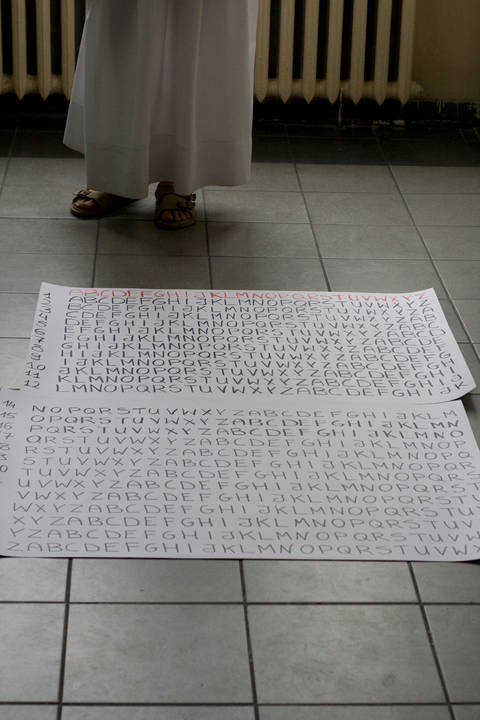 ABCDEFGHIJKLMNOPQRSTUVWXYZ
ABCDEFGHIJKLMNOPQRSTUVWXYZ
BCDEFGHIJKLMNOPQRSTUVWXYZA
CDEFGHIJKLMNOPQRSTUVWXYZAB
DEFGHIJKLMNOPQRSTUVWXYZABC
EFGHIJKLMNOPQRSTUVWXYZABCD
FGHIJKLMNOPQRSTUVWXYZABCDE
GHIJKLMNOPQRSTUVWXYZABCDEF
HIJKLMNOPQRSTUVWXYZABCDEFG
IJKLMNOPQRSTUVWXYZABCDEFGH
JKLMNOPQRSTUVWXYZABCDEFGHI
KLMNOPQRSTUVWXYZABCDEFGHIJ
12 LMNOPQRSTUVWXYZABCDEFGHIJK
14 NOPQRSTUVWXYZABCDEFGHIJKL
15 OPQRSTUVWXYZABCDEFGHIJKLMN
16 PQRSTUVWXYZABCDEFGHIJKLMNO
7 QRSTUVWXYZABCDEFGHIJKLMNOP
8 RSTUVWXYZABCDEFGHIJKLMNOPQ
STUVWXYZABCDEFGHIJKLMNOPQR
TUVWXYZABCDEFGHIJKLMNOPQR
UVWXYZABCDEFGHIJKLMNOPQRS
VWXYZABCDEFGHIJKLMNOPQRST
WXYZABCDEFGHIJKLMNOPQRSTU
XYZABCDEFGHIJKLMNOPQRSTUV
YZABCDEFGHIJKLMNOPQRSTUV
ZABCDEFGHIJKLMNOPQRSTUVW